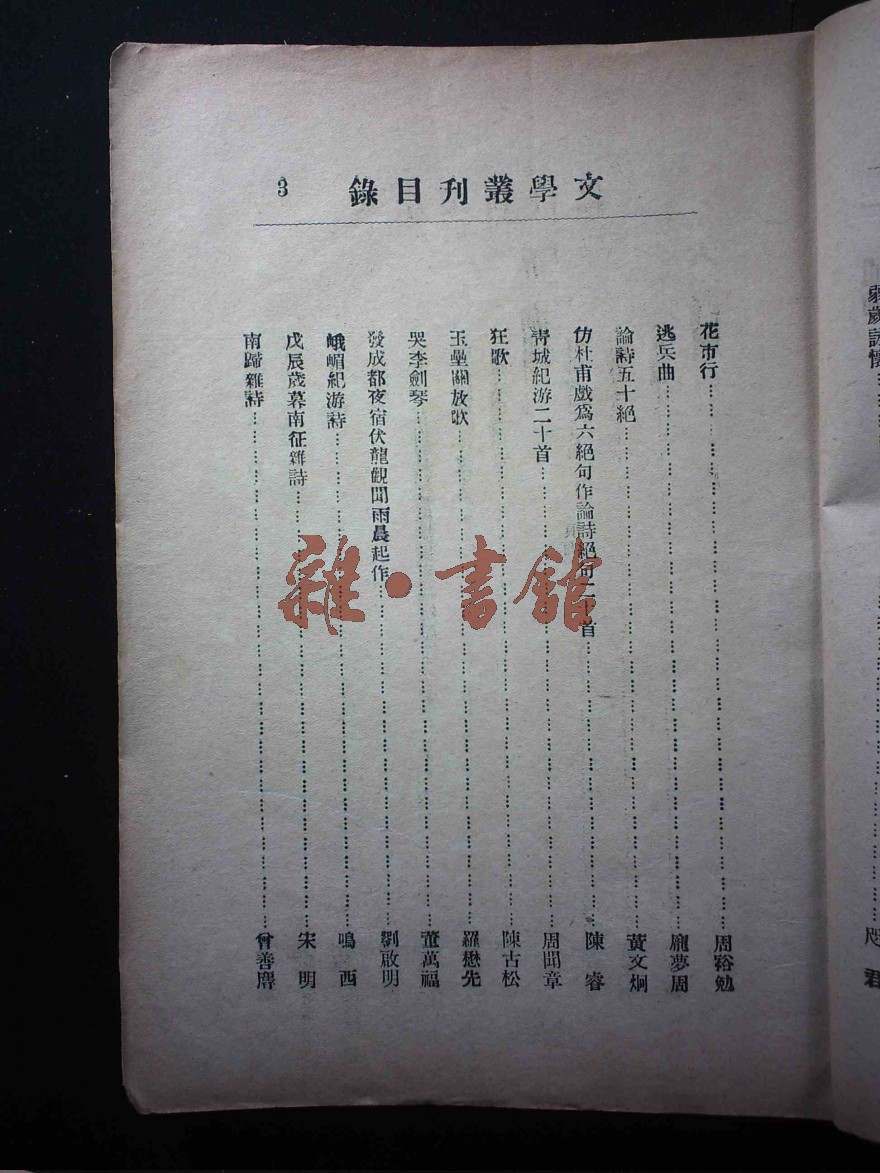 文學叢刊目錄
3
花市行……周谿勉
逃兵曲……龐夢周
論詩五十絕……黃文炯
仿杜甫戲爲六絕句作論詩絕句二十首……陳睿
靑城紀游二十首……周聞章
狂歌……陳古松
玉壘關放歌……羅懋先
哭李劍琴……董萬福
發成都夜宿伏龍觀聞雨晨起作……劉啟明
峨嵋紀游詩……鳴西
戊辰歲暮南征雜詩……宋明
南歸雜詩……曾善
雜·書館
君